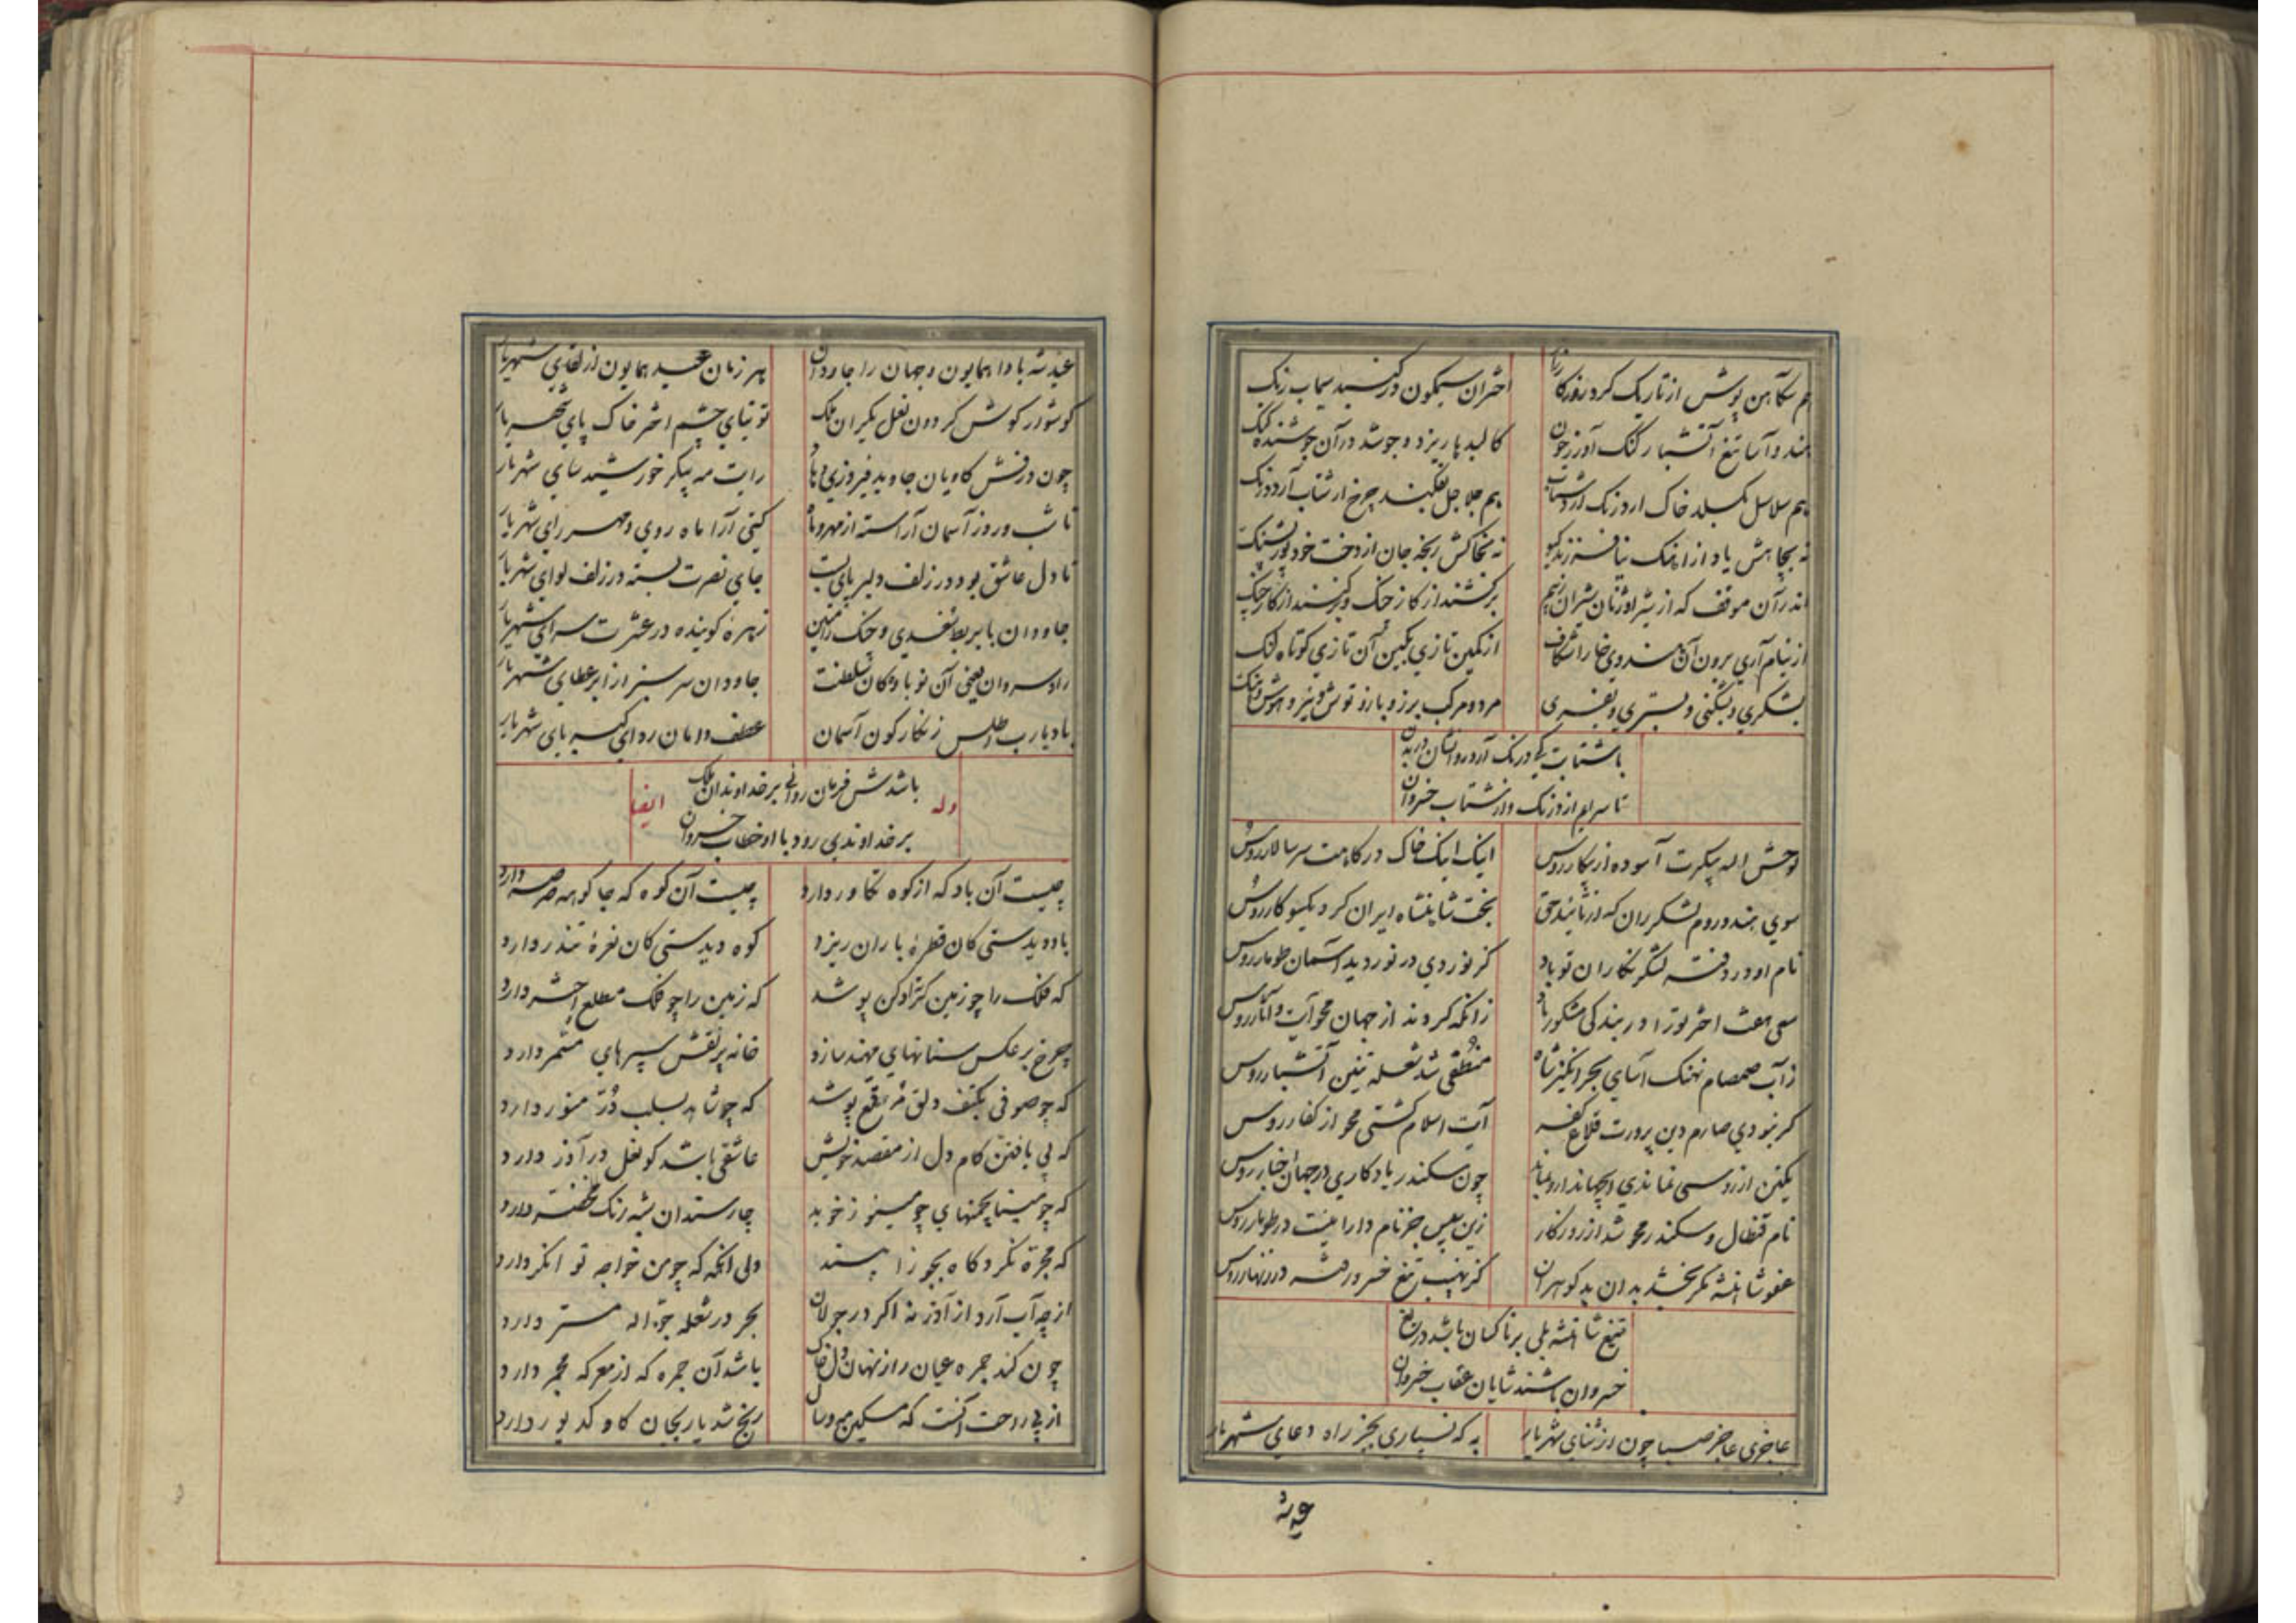 هم سکاهن پوش از تاریک کرد روزگار اختران سیمگون در گنبد سیماب رنگ
هندوآسا تیغ آتشبار گنگ آور ز خون کالبدها ریزد و جوشد در آن جوشنده گنگ
هم سلاسل بگسلد خاک ار درنگ آرد شتاب هم جلاجل بفکند چرخ ار شتاب آرد درنگ
نه بجاهش یاد از اورنگ نه بخاکش رنجه جان از دخت خود پور پشنگ
اندر آن موقف که از شیر اوژنان شیران رزم برگشند از کار جنگ
از نیام آری برون آن هندوی خارا شکاف از کمین تازی بکین آن تازی کوتاه لنگ
بشکری و بشکنی و بستری و بفسری مرد و مرکب برز و بازو توش و نیز و هوش و هنگ
باشتابت کی درنگ آرد روانشان در بدن
تا سرایم از درنگ و از شتاب خسروان
لوحش الله پیکرت آسوده از پیکار روس اینک اینک خاک درگاهت سر سالار روس
سوی هند و روم لشکر ران که از تأیید حق بخت شاهنشاه ایران کرد یکسو کار روس
نام او در دفتر لشکر نگاران تو باد کز نوردی در نوردید آسمان طومار روس
سعی هفت اختر تو را در بندگی مشکور باد زانکه کردند از جهان محو آیت و آثار روس
ز آب صمصام نهنگ آسای بحر انگیز شاه منطفی شد شعله تنین آتشبار روس
گر نبودی صارم دین پرورت قلاع کفر آیت اسلام گشتی محو از کفار روس
یکتن از روسی نماندی در جهان چون سکندر یادگاری در جهان اخبار روس
نام قنطال و سکندر محو شد از روزگار زین سپس جز نام دارا نیست در طومار روس
عفو شاهنشه مگر بخشد بدان بد گوهران کز نهیب تیغ خسرو رفته در زنهار روس
تیغ شاهنشه بلی بر ناکسان باشد دریغ
خسروان باشند شایان عقاب خسروان
عاجزی عاجز صبا چون از ثنای شهریار به که نسپاری بجز راه دعای شهریار
عید شه
عید شه بادا همایون در جهان را جاودان هر زمان عید همایون از لقای شهریار
گوشوار گوش گردون نعل یکران ملک توتیای چشم اختر خاک پای شهریار
چون درفش کاویان جاوید فیروزی دهاد رایت مه پیکر خورشید سای شهریار
تا شب و روز آسمان آراسته از مهر و ماه گیتی آرا ماه روی و مهر رای شهریار
تا دل عاشق بود در زلف دلبر پای بست جای نصرت بسته در زلف لوای شهریار
جاودان با بربط سغدی و چنگ رامتین زهره گوینده در عشرت سرای شهریار
راد سروان یعنی آن نوبادگان سلطنت جاودان سرسبز از ابر عطای شهریار
باد یا رب اطلس زنگارگون آسمان عطف دامان ردای کبریای شهریار
باشدش فرمان روائی بر خداوندان ملک
بر خداوندی رود با او خطاب خسروان
وله ایضا
چیست آن باد که از کوه تکاور دارد چیست آن کوه که جا گوهر صرصر دارد
باد دیدستی کان قطره باران ریزد کوه دیدستی کان نعره تندر دارد
که فلک را چو زمین گرد ادکن پوشد که زمین را چو فلک مطلع اختر دارد
چرخ بر عکس سنانهای مهند سازد خانه پر نقش سپرهای مشمر دارد
که چو صوفی بکتف دلق مرقع پوشد که چو شاهد بسلب در منور دارد
که پی یافتن کام دل از مقصد خویش عاشقی باشد کو نعل در آذر دارد
که چو مینا چمنهای چو مینو ز خوید چار سندان شبه رنگ
که مجره نگرد کاه بجوزا بیند ولی انگه که چو من خواجه توانگر دارد
از چه آب آرد از آذر نه اگر در جولان بحر در شعله جواله مستر دارد
چون کند جمره عیان راز نهان دل خاک باشد آن جمره که از معرکه مجمر دارد
از پی راحت آنست که مسکین مه و سال رنج شد یار بجان گاو کدیور دارد